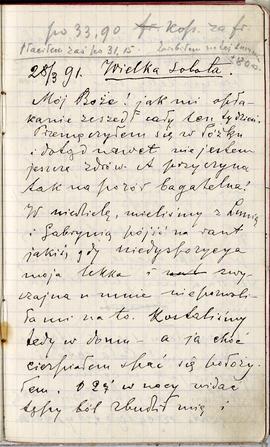 po 33,90 kop. za fr
Płaciłem zaś po 31,15. Zarobiłem na tej
1800.
28/3 91. Wielka Sobota.
Mój Boże! jak mi opła-
kanie zeszedł cały ten tydzień.
Przemęczyłem się w łóżku
i dotąd nawet nie jestem
jeszcze zdrów. A przyczyna
tak na pozór bagatelna!
W niedzielę, mieliśmy z Lunią
i Gabrynią pójść na raut
jakiś, gdy niedyspozycya
moja lekka i zwy-
czajna u mnie niepozwoli-
ła mi na to. Zostaliśmy
tedy w domu - a ja choć
cierpiałem spać się położy-
łem. O 2ej w nocy widać
tępy ból zbudził mię i